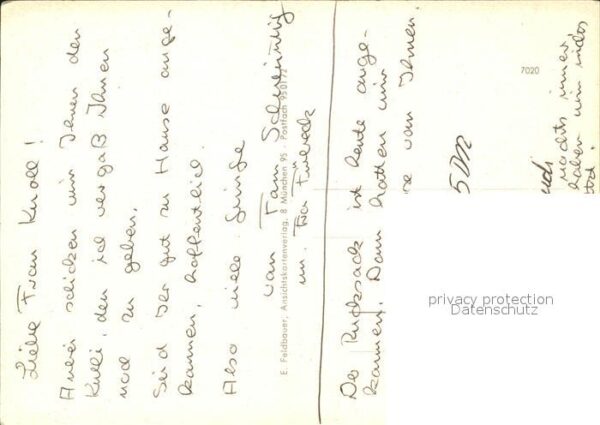 Liebe Frau Knoll!
Anbei schicken wir Ihnen den
Kulli, den ich vergaß Ihnen
noch zu geben.
Seid Ihr gut zu Hause ange-
kommen, hoffentlich.
Also viele Grüße
von Fam.
E. Feldbauer, Ansichtskartenverlag, 8 München 95 - Postfach 950172
Der Rucksack ist heute ange-
kommen. Dann hatten wir
von Ihnen.
5 DM
nachts immer
haben wir
7020
privacy protection
Datenschutz